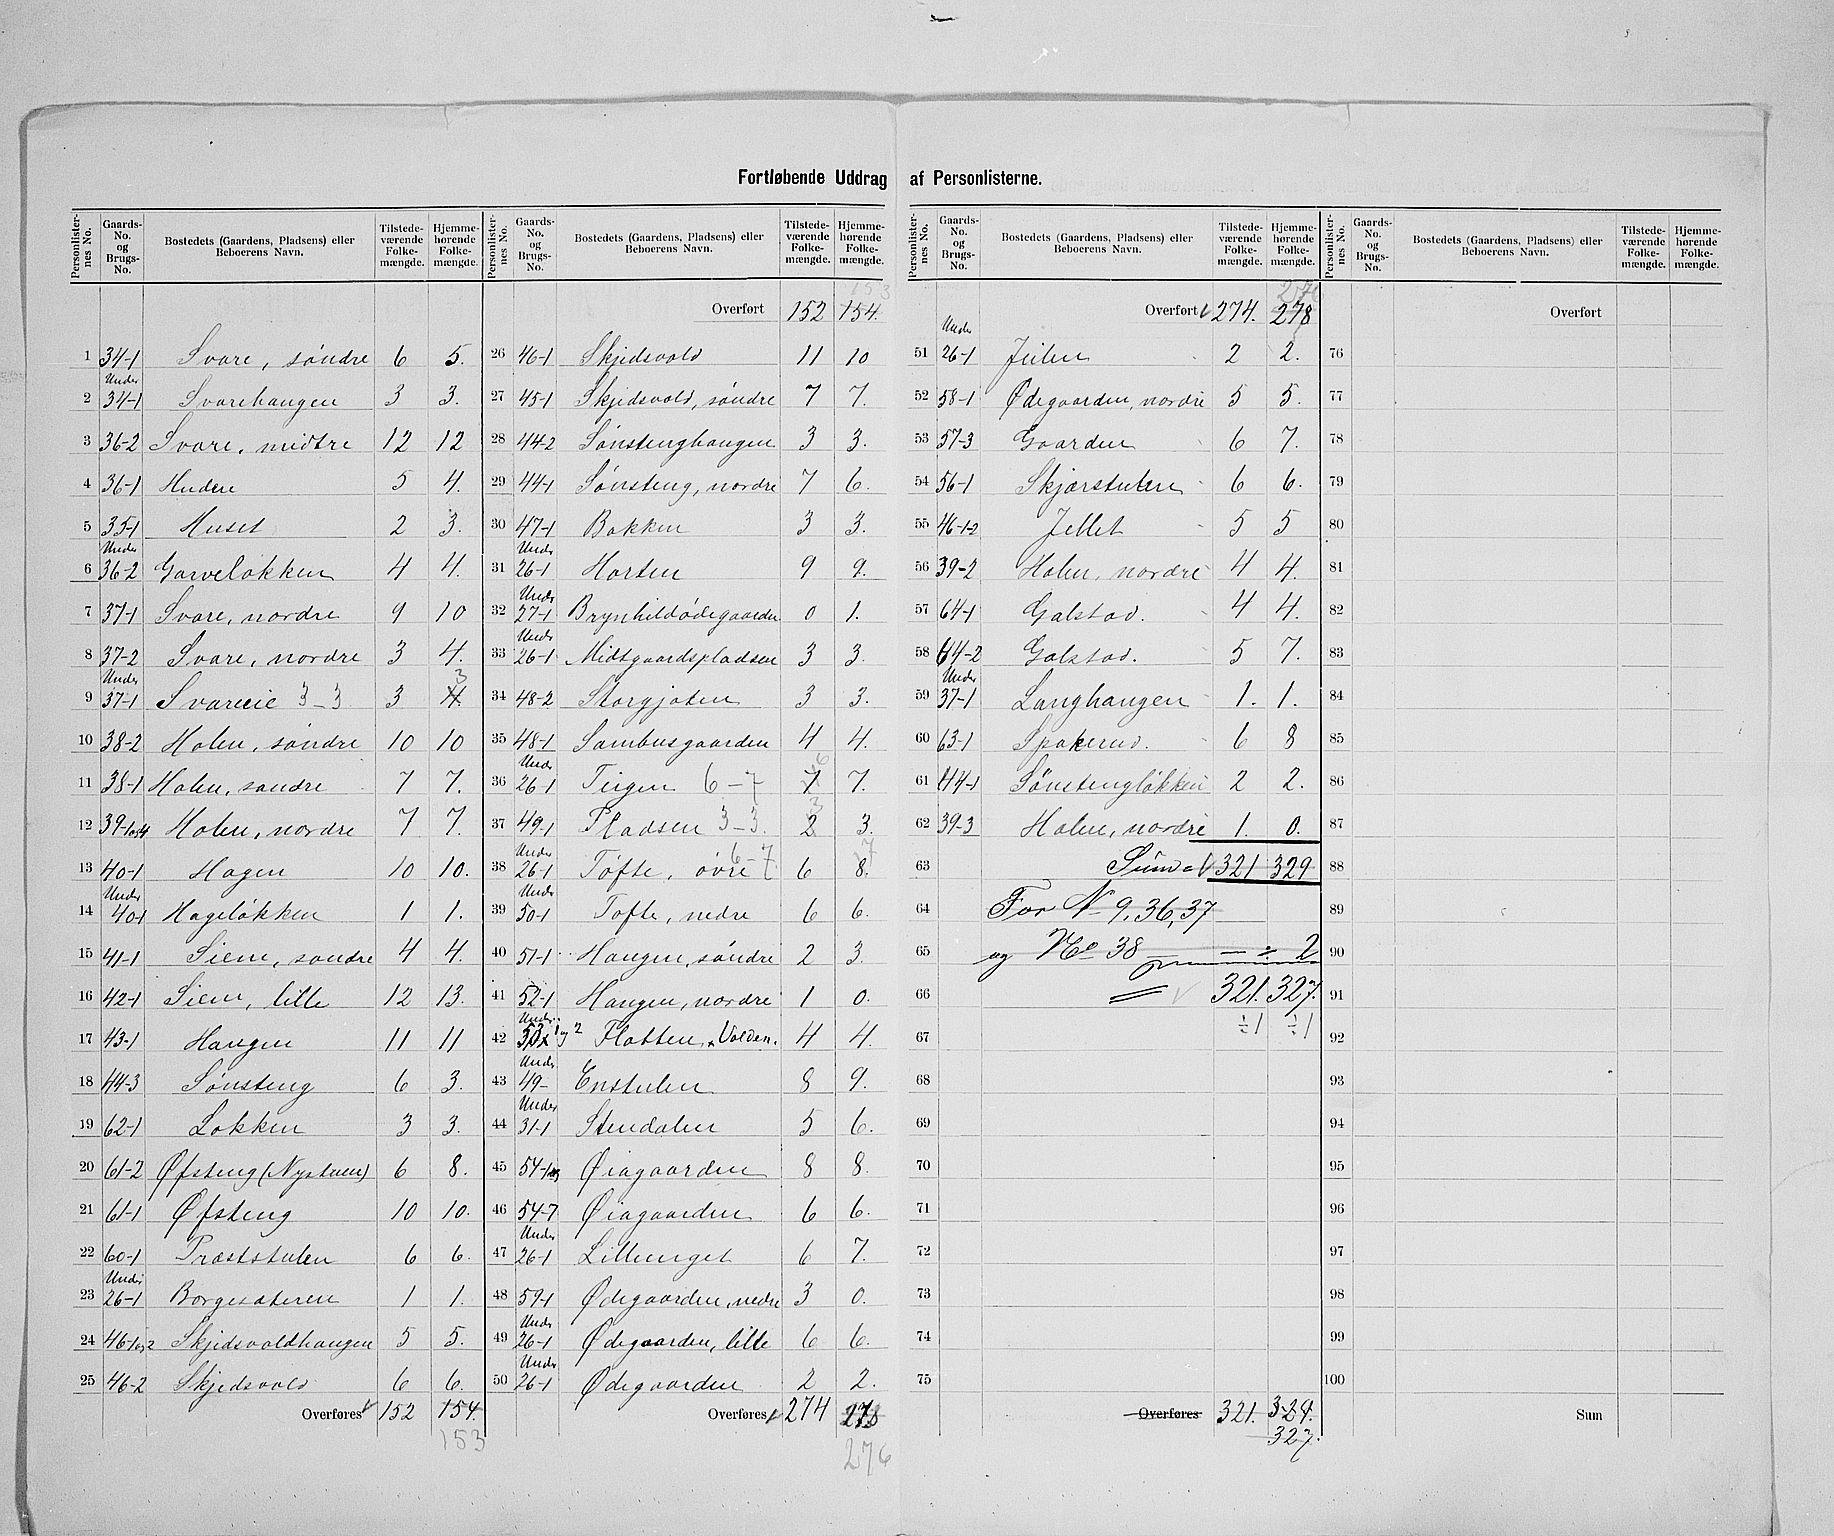 Fortløbende Uddrag af Personlisternes.
Personlister-nes No. | Gaards-No. og Brugs-No. | Bostedets (Gaardens, Pladsens) eller Beboerens Navn. | Tilstede-værende Folke-mængde. | Hjemme-hørende Folke-mængde.
1 34-1 Svare, søndre 6 5.
2 Under 34-1 Svarehaugen 3 3.
3 36-2 Svare, midtre 12 12
4 36-1 Hudere 5 4.
5 35-1 Huset 2 3.
6 Under 36-2 Garveløkken 4 4.
7 37-1 Svare, nordre 9 10
8 37-2 Svare, nordre 3 4.
9 Under 37-1 Svareeie 3-3 3 4 3
10 38-2 Holen, søndre 10 10
11 38-1 Holen, søndre 7 7.
12 39-1og4 Holen, nordre 7 7.
13 40-1 Hagen 10 10.
14 Under 40-1 Hageløkken 1 1.
15 41-1 Siem, søndre 4 4.
16 42-1 Siem, lille 12 13.
17 43-1 Haugen 11 11
18 44-3 Sønsteng 6 3.
19 62-1 Løkken 3 3.
20 61-2 Øfsteng (Nystuen) 6 8.
21 61-1 Øfsteng 10 10.
22 60-1 Præststulen 6 6.
23 Under 26-1 Borgesæteren 1 1.
24 46-1og2 Skjedsvoldhaugen 5 5.
25 46-2 Skjedsvold 6 6.
Overføres 152 154.
153
Personlister-nes No. | Gaards-No. og Brugs-No. | Bostedets (Gaardens, Pladsens) eller Beboerens Navn. | Tilstede-værende Folke-mængde. | Hjemme-hørende Folke-mængde.
153
Overført 152 154.
26 46-1 Skjedsvold 11 10
27 45-1 Skjedsvold, søndre 7 7.
28 44-2 Sønstenghaugen 3 3.
29 44-1 Sønsteng, nordre 7 6.
30 47-1 Bakken 3 3.
31 Under 26-1 Horten 9 9.
32 Under 27-1 Brynhildødegaarden 0 1.
33 Under 26-1 Midtgaardspladsen 3 3.
34 48-2 Storgjoten 3 3.
35 48-1 Sambusgaarden 4 4.
36 Under 26-1 Teigen 6-7 7 6 7.
37 49-1 Pladsen 3-3. 2 3 3.
38 Under 26-1 Tøfte, øvre 6-7 6 8. 7
39 Under 50-1 Tøfte, nedre 6 6.
40 51-1 Haugen, søndre 2 3.
41 52-1 Haugen, nordre 1 0.
42 Under 53 1 og 2 Flatten, Volden. 4 4.
43 Under 49- Enstulen 8 9.
44 Under 31-1 Stendalen 5 6.
45 54-1 Øiagaarden 8 8.
46 54-7 Øiagaarden 6 6.
47 Under 26-1 Lillenget 6 7.
48 59-1 Ødegaarden, nedre 3 0.
49 Under 26-1 Ødegaarden, lille 6 6.
50 Under 26-1 Ødegaarden 2 2.
Overføres 274 278
276
Personlister-nes No. | Gaards-No. og Brugs-No. | Bostedets (Gaardens, Pladsens) eller Beboerens Navn. | Tilstede-værende Folke-mængde. | Hjemme-hørende Folke-mængde.
276
Overført 274. 278
51 Under 26-1 Jeilen 2 2.
52 58-1 Ødegaarden, nordre 5 5.
53 57-3 Gaarden 6 7.
54 56-1 Skjærstulen 6 6.
55 46-1-2 Jellet 5 5
56 39-2 Holen, nordre 4 4.
57 64-1 Galstad. 4 4.
58 64-2 Galstad. 5 7.
59 Under 37-1 Langhaugen 1. 1.
60 63-1 Spakerud. 6 8
61 44-1 Sønstengløkken 2 2.
62 39-3 Holen, nordre 1. 0.
63 Sum = 321 329
64 For No 9, 36, 37
65 og No 38 — — ÷ 2
66 321. 327.
÷1 ÷1
67
68
69
70
71
72
73
74
75
Overføres 321. 329.
327.
Personlister-nes No. | Gaards-No. og Brugs-No. | Bostedets (Gaardens, Pladsens) eller Beboerens Navn. | Tilstede-værende Folke-mængde. | Hjemme-hørende Folke-mængde.
Overført
76
77
78
79
80
81
82
83
84
85
86
87
88
89
90
91
92
93
94
95
96
97
98
99
100
Sum